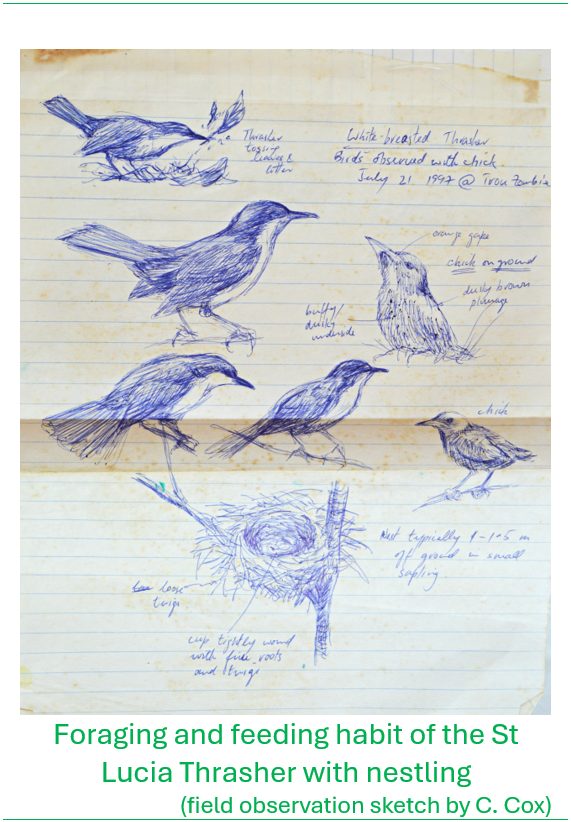 White-breasted Thrasher
Birds observed with chick.
July 21 1997 @ Trou Zombie
Thrasher
tossing
leaves &
litter
orange gape
chick on ground
dusky brown
plumage
buffy/
dusky
underside
chick
Nest typically 1-1.5 m
off ground in small
sapling.
loose
twigs
cup tightly wound
with fine roots
and twigs
Foraging and feeding habit of the St
Lucia Thrasher with nestling
(field observation sketch by C. Cox)